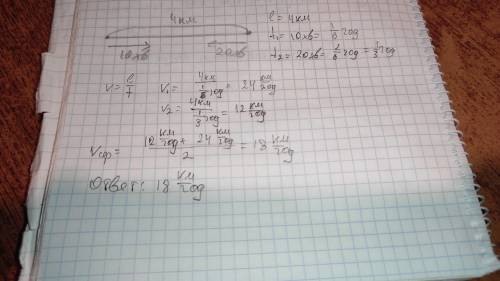 4км
10хв 20хв
l = 4км
t₁ = 10хв = 1/6 год
t₂ = 20хв = 2/6 год = 1/3 год
V = l/T V₁ = 4км / 1/6 год = 24 км/год
V₂ = 4км / 1/3 год = 12 км/год
Vср = (12 км/год + 24 км/год) / 2 = 18 км/год
Ответ: 18 км/год